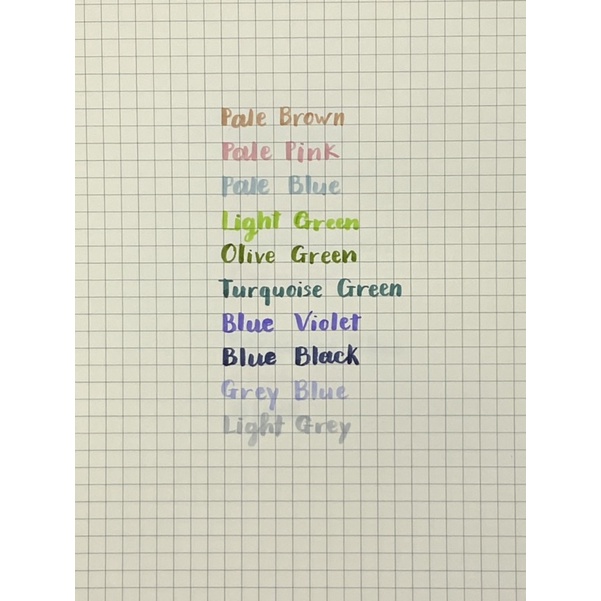 Pale Brown
Pale Pink
Pale Blue
Light Green
Olive Green
Turquoise Green
Blue Violet
Blue Black
Grey Blue
Light Grey